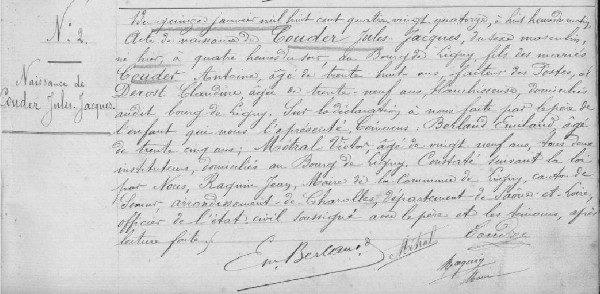 N° 2.
Naissance de
Couder Jules Jacques.
Le quinze janvier mil huit cent quatre vingt quatorze, à huit heures du matin,
Acte de naissance de Couder Jules-Jacques, du sexe masculin,
né hier, à quatre heures du soir, au Bourg de Ligny, fils des mariés
Couder Antoine, âgé de trente huit ans, facteur des Postes, et
Derost Claudine âgée de trente-neuf ans, blanchisseuse, domiciliés
audit bourg de Ligny. Sur la déclaration à nous faite par le père de
l'enfant que nous a présenté. Témoins: Berland Emiland, âgé
de trente cinq ans; Métral Victor, âgé de vingt neuf ans, tous deux
instituteurs, domiciliés au Bourg de Ligny. Constaté suivant la loi
par Nous, Raquin Jean, Maire de la Commune de Ligny, canton de
Semur, arrondissement de Charolles, département de Saône-et-Loire,
officier de l'état civil soussigné avec le père et les témoins, après
lecture faite.
Em. Berland Métral Couder
Raquin
Maire